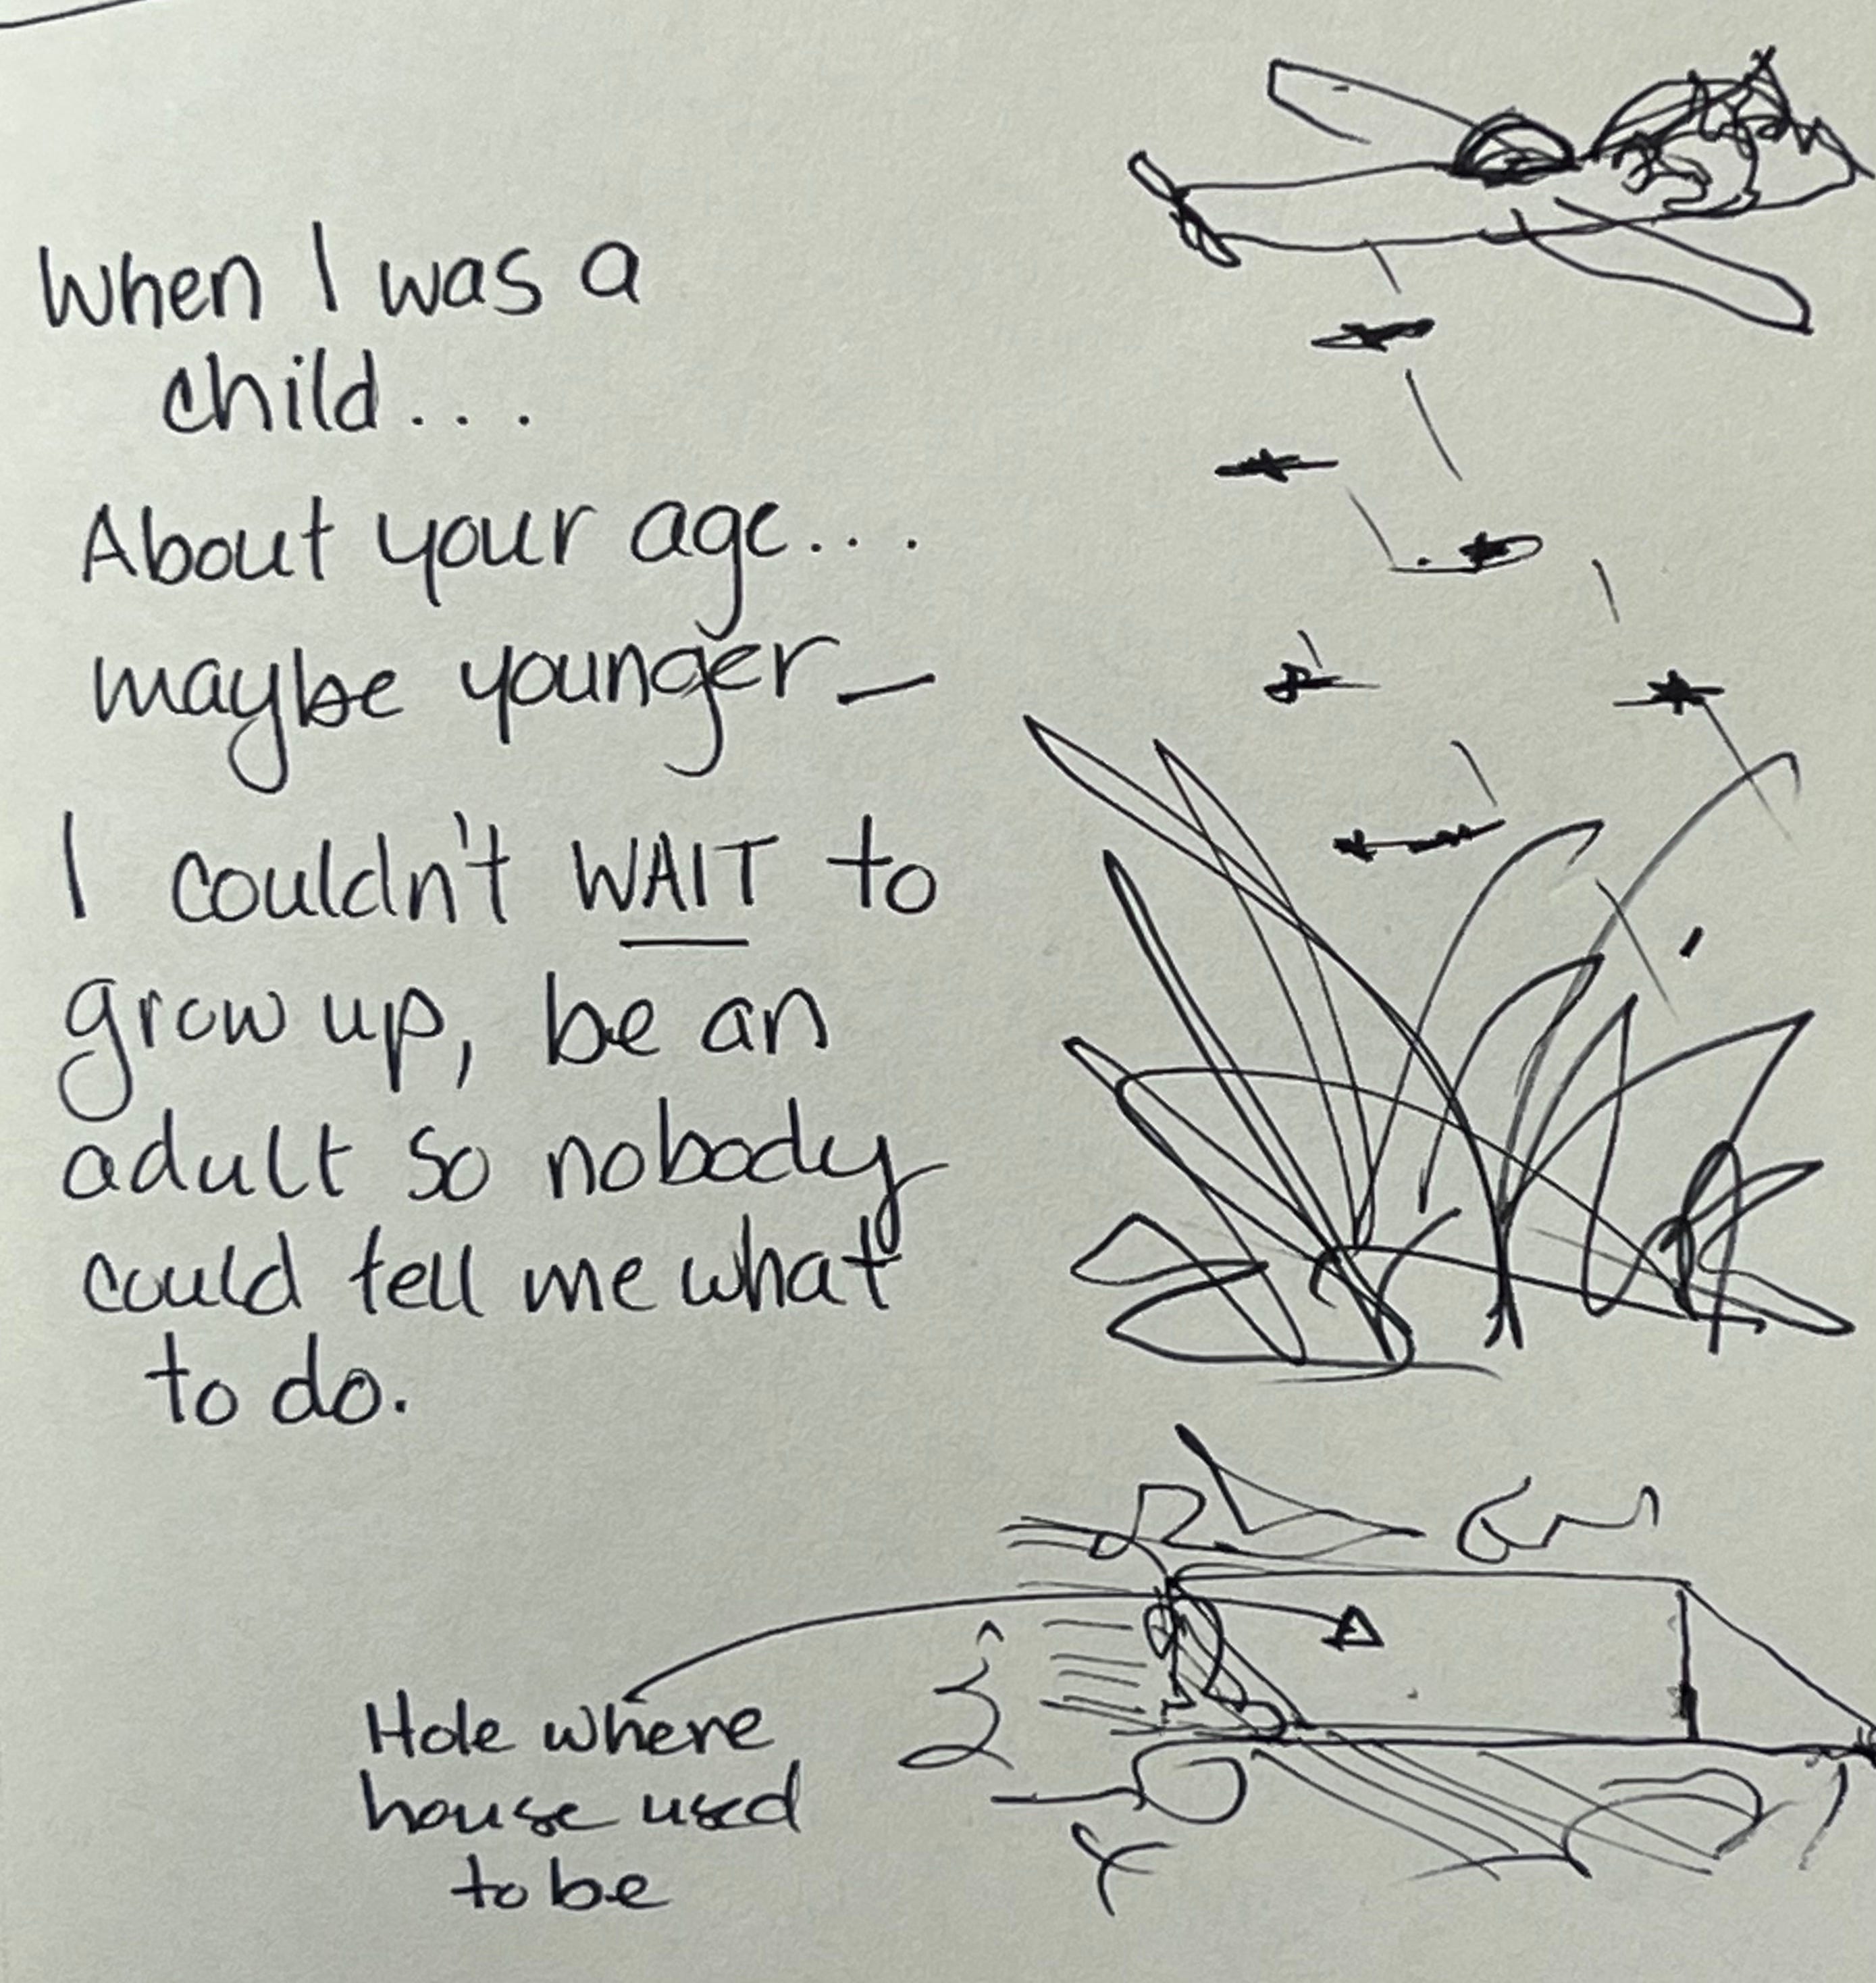 When I was a
child...
About your age...
maybe younger—
I couldn't WAIT to
grow up, be an
adult so nobody
could tell me what
to do.
Hole where
house used
to be